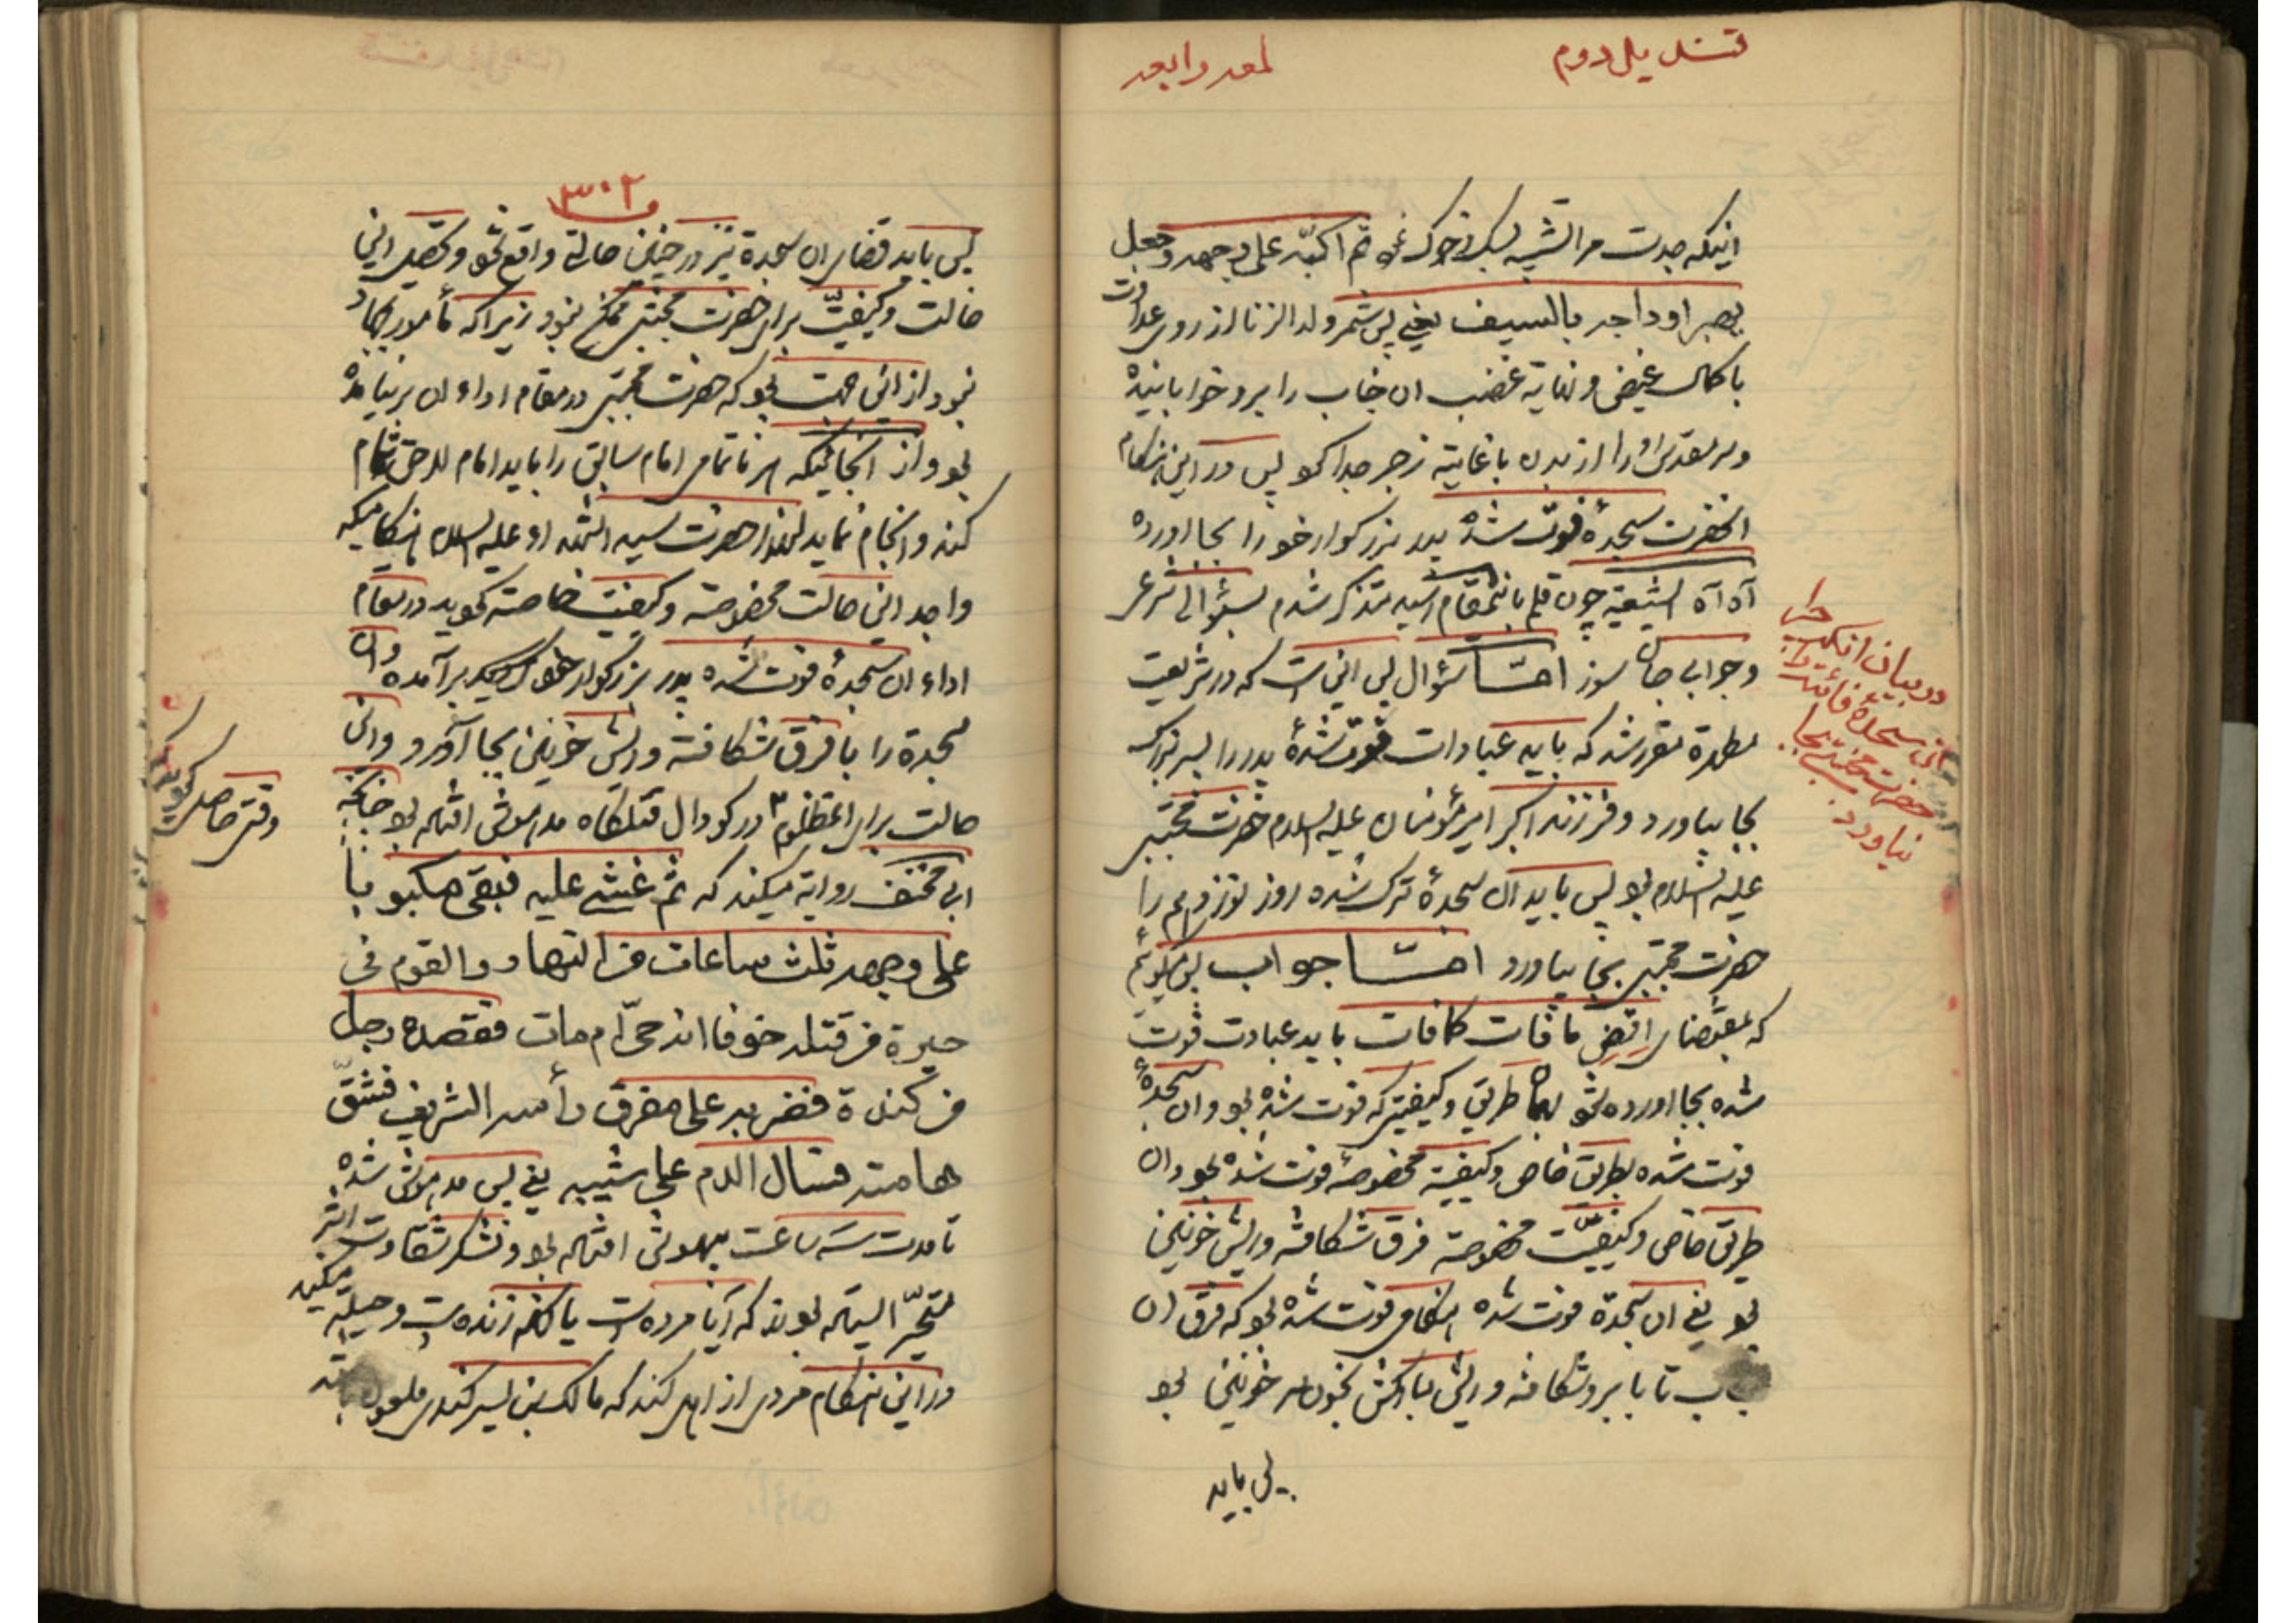 قندیل دوم
لمعه رابعه
اینکه جدت مرا تشنه لب ثم اکبّه علی وجهه وجعل
یجر اوداجه بالسیف یعنی پس شمر ولد الزنا از روی عداوت
با کمال غیض و نهایة غضب ان جناب را برو خوابانیده
و سر مقدس او را از بدن با غایة زجر جدا کرد پس در این هنکام
انحضرت سجدهٔ فوت شدهٔ پدر بزرکوار خود را بجا اورده
آه آه ایشیعه چون قلم باینمقام رسید متذکر شدم بسؤالی
و جوابی جان سوز امّا سؤال پس این است که در شریعت
مطهره مقرر شد که باید عبادات فوت شدهٔ پدر را پسر بزرک
بجا بیاورد و فرزند اکبر امیر مؤمنان علیه السلام حضرت مجتبی
علیه السلام بود پس باید ان سجدهٔ ترک شده روز نوزدهم را
حضرت مجتبی بجا بیاورد امّا جواب پس میکوئیم
که بمقتضای اقض ما فات کما فات باید عبادت فوت
شده بجا اورده شود بهمان طریق و کیفیتی که فوت شده بود و ان سجدهٔ
فوت شده بطریق خاص و کیفیة مخصوصه فوت شده بود و ان
طریق خاص و کیفیّت مخصوصه فرق شکافته و ریش خونین
بود یعنی ان سجدة فوت شده هنکامی فوت شده بود که فرق ان
جناب تا بابرو شکافته و ریش مبارکش بخون سر خونین بود
پس باید
در بیان انکه چرا
این سجدة فائته را
حضرت مجتبی بجا
نیاورد
۳۰۲
پس باید قضای ان سجدة نیز در چنین حالة واقع شود و تحصیل این
حالت و کیفیّت برای حضرت مجتبی ممکن نبود زیرا که مأمور بجهاد
نبود از این جهت بود که حضرت مجتبی در مقام اداء ان بر نیامده
بود و از انجائیکه هر ناتمامی امام سابق را باید امام لاحق تمام
کند و انجام نماید لهذا حضرت سید الشهداء علیه السلام هنکامیکه
واجد این حالت مخصوصه و کیفیت خاصه کردید در مقام
اداء ان سجدهٔ فوت شده پدر بزرکوار خود بر آمده و ان
سجدة را با فرق شکافته و ریش خونین بجا آورد و این
حالت برای انمظلوم در کودال قتلکاه مدهوش افتاده بود چنانچه
ابی مخنف روایة میکند که ثم غشی علیه فبقی مکبوبا
علی وجهه ثلث ساعات من النهار والقوم فی
حیرة من قتله خوفا انه حیّ ام مات فقصده رجل
من کندة فضربه علی مفرق رأسه الشریف فشقّ
هامته فسال الدم علی شیبه یعنی پس مدهوش شده
تا مدت سه ساعت بیهوش افتاده بود و لشکر شقاوت اثر
متحیّر ایستاده بودند که آیا مرده است یا انکه زنده است و حیله میکند
در این هنکام مردی از اهل کنده که مالک بن یسر کندی ملعون
وقتی حاصل کردید